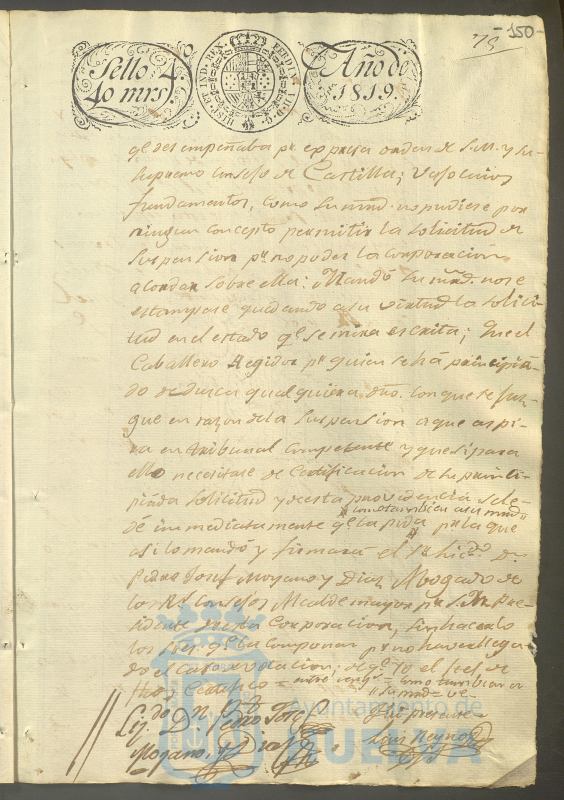 75 -150-
Sello 4.º
40 mrs.
HISP. ET IND. REX. FERD. VII. D. G.
Año de
1819.
qe. desempeñaba pr. expresa orden de S.M. y Su-
supremo Consejo de Castilla; vajo cuios
fundamentos, como su mrd. no pudiese por
ningun concepto permitir la solicitud de
suspension pr. no poder la corporacion
acordar sobre ella: Mandó su mrd. no se
estampase quedando a su virtud la solici-
tud en el estado qe. se mira escrita; que el
Caballero Regidor pr. quien se há principia-
do deduzca qualquiera dro. con que se juz-
gue en razon de la suspension a que aspi-
ra en tribunal competente y que si para
ello necesitase de Certificacion de la princi-
piada solicitud y de esta providencia se le
dé immediatamente qe. la pida pr. la que
como tambien a su mrd.
asi lo mandó y firmará el Sr. Licdo. Dn.
Pedro Josef Moyano y Diaz Abogado de
los Rs. Consejos Alcalde mayor pr. S.M. Pre-
sidente de esta Corporacion, sin hacerlo
los Sres. qe. la componen pr. no haver llega-
do el caso de votacion, de qe. yo el Secs. de
Certifico = entre rengs. = como tambien a
su mrd. = ve =
Liz.do Dn. Pedro Josef
Moyano y Diaz
Fui presente
Luis Reyno
Ayuntamiento de
HUELVA